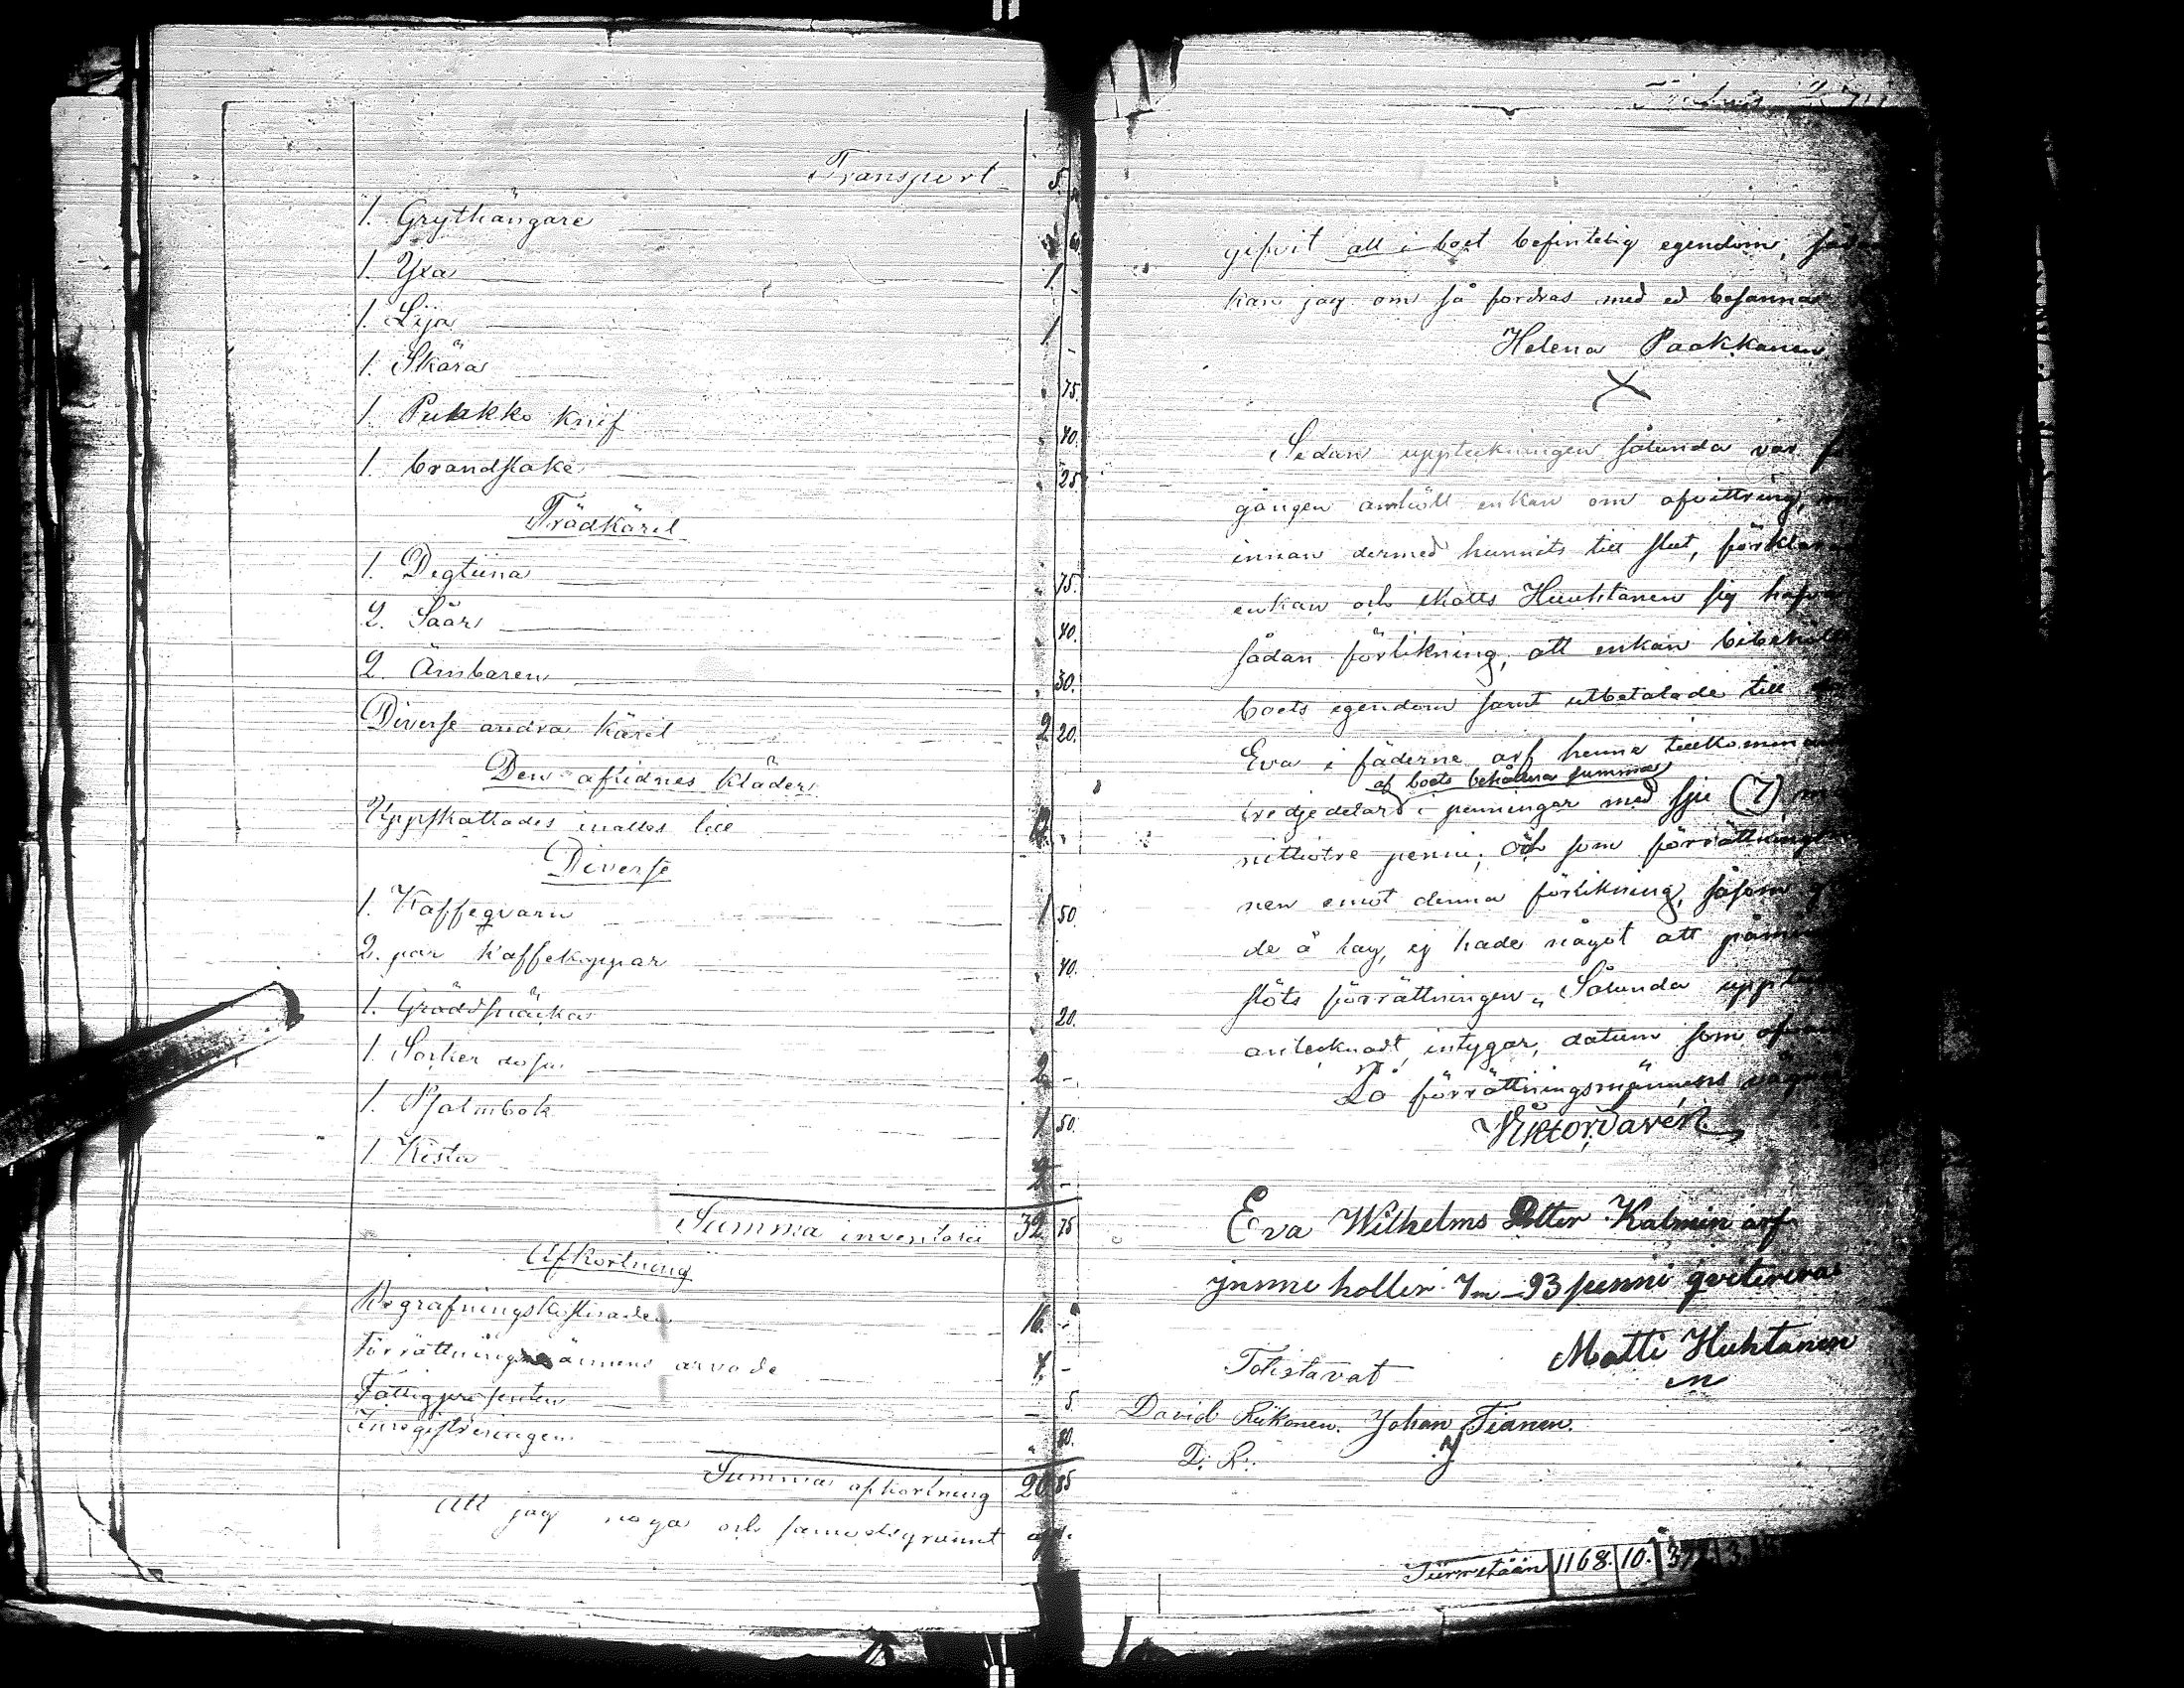 Transport 5.
1. Grythängare
1. Yxa 1.
1. Lija 1
1. Skära 75.
1. Puukko knif 40.
1. brandstake 25.
Trädkäril
1. Degtiina 75.
2. Såar 40.
2. Ämbaren 50.
Diverse andra käril 2 20.
Den aflidnes kläder
Uppskattades inalles till
Diverse
1. Kaffeqvarn 1 50.
2. par kaffekoppar 40.
1. Gräddsnäcka 20.
1. Socker dosa 2 -
1. Psalmbok 1 50.
1. Kista 2 -
Summa inventarii 32 75
Afkortning
Begrafningskostnaden 16. -
Förrättningsmännens arvode 4. -
Fattigprosenten 5.
Inregistreringen
Summa afkortning 20 85
Att jag noga och samvetsgrannt
gifvit all i boet befintelig egendom,
kan jag om så fordras med ed besanna
Helena Paakkanen
X
Sedan uppteckningen sålunda var
gången anhöll enkan om afvittring,
innan dermed hunnits till slut,
enkan och Matts Huuhtanen sig
sådan förlikning, att enkan
boets egendom samt utbetalade till
Eva i fäderne arf henne
af boets behållna summa
tredjedelar i penningar med sju (7)
nittiotre penni; Och som
nen emot denna förlikning, såsom
de å lag, ej hade något att
slöts förrättningen. Sålunda
antecknadt, intygar, datum som
På förrättningsmännens vägnar
Viktor Davén
Eva Wilhelms Dotter Kalmin arf
jnnne holler 7m-93 penni qviterera
Matti Huhtanen
m
Totistavat
David Rikonen. Johan Tianen.
D. R. J
Siirretään 1168. 10.